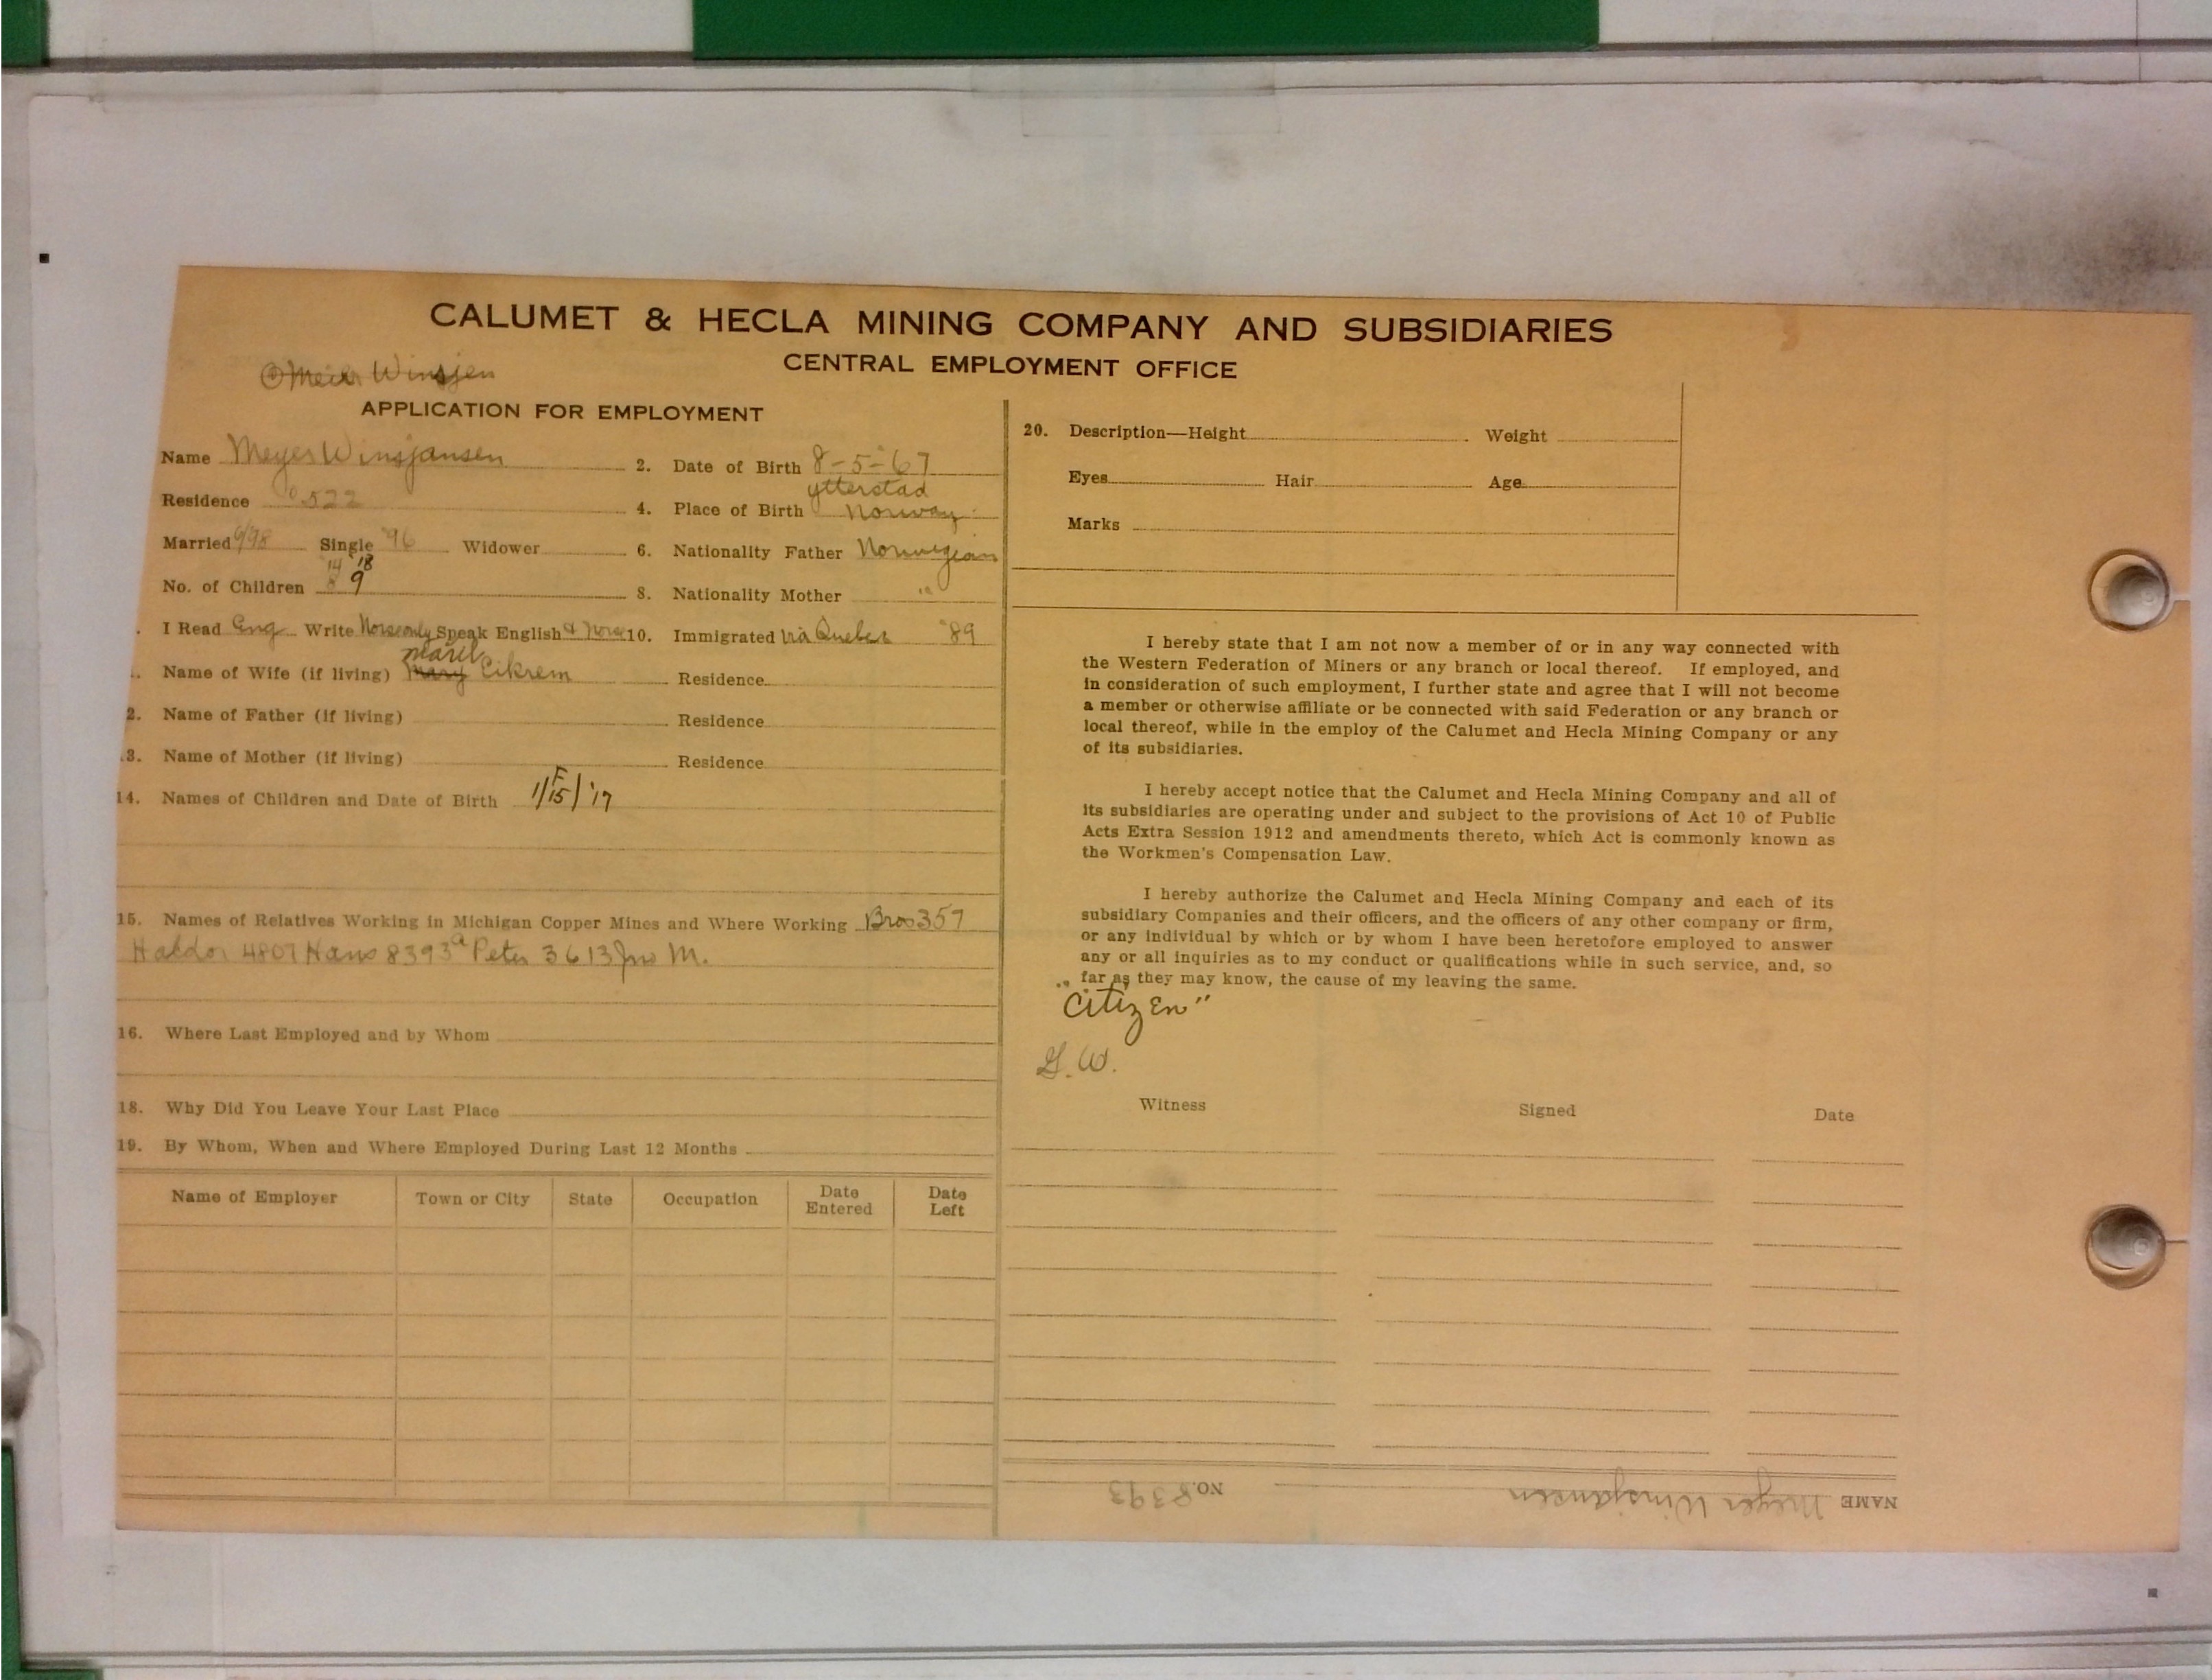 CALUMET & HECLA MINING COMPANY AND SUBSIDIARIES
CENTRAL EMPLOYMENT OFFICE
Winsjen
APPLICATION FOR EMPLOYMENT
Name Meyer Winsjansen 2. Date of Birth 8-5-67
Residence 522 4. Place of Birth Ytterstad Norway
Married 9/98 Single '96 Widower 6. Nationality Father Norwegian
14 18
No. of Children 8 9 8. Nationality Mother "
I Read Eng Write Norse only Speak English & Norse 10. Immigrated via Quebec '89
Name of Wife (if living) Mary Marit Eikrem Residence
2. Name of Father (if living) Residence
3. Name of Mother (if living) Residence
14. Names of Children and Date of Birth F 1/15/'17
15. Names of Relatives Working in Michigan Copper Mines and Where Working Bros 357
Haldor 4807 Hans 8393a Peter 3613 Jno M.
16. Where Last Employed and by Whom
18. Why Did You Leave Your Last Place
19. By Whom, When and Where Employed During Last 12 Months
Name of Employer Town or City State Occupation Date Entered Date Left
20. Description—Height Weight
Eyes Hair Age
Marks
I hereby state that I am not now a member of or in any way connected with
the Western Federation of Miners or any branch or local thereof. If employed, and
in consideration of such employment, I further state and agree that I will not become
a member or otherwise affiliate or be connected with said Federation or any branch or
local thereof, while in the employ of the Calumet and Hecla Mining Company or any
of its subsidiaries.
I hereby accept notice that the Calumet and Hecla Mining Company and all of
its subsidiaries are operating under and subject to the provisions of Act 10 of Public
Acts Extra Session 1912 and amendments thereto, which Act is commonly known as
the Workmen's Compensation Law.
I hereby authorize the Calumet and Hecla Mining Company and each of its
subsidiary Companies and their officers, and the officers of any other company or firm,
or any individual by which or by whom I have been heretofore employed to answer
any or all inquiries as to my conduct or qualifications while in such service, and, so
far as they may know, the cause of my leaving the same.
"Citizen"
G.W.
Witness Signed Date
NAME Meyer Winsjansen NO. 8393